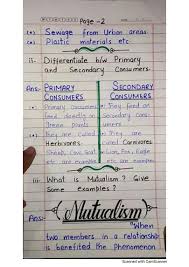 Page - 2
(•) Sewage from Urban areas
(•) Plastic materials etc
ii- Differentiate b/w Primary
and Secondary Consumers.
Ans- PRIMARY CONSUMERS
(•) Primary Consumers
feed directly on
Green plants
(•) They are called
Herbivores
Sheep, Cow, Goat
etc are examples
SECONDARY CONSUMERS
They feed on
Secondary Cons
(•) They are
called Carnivores
Lion, Fox, Eagle
etc are examples
iii- What is Mutualism? Give
Some examples?
Ans:- Mutualism
"When
two members in a relationship
is benefited the Phenomenon
Scanned with CamScanner